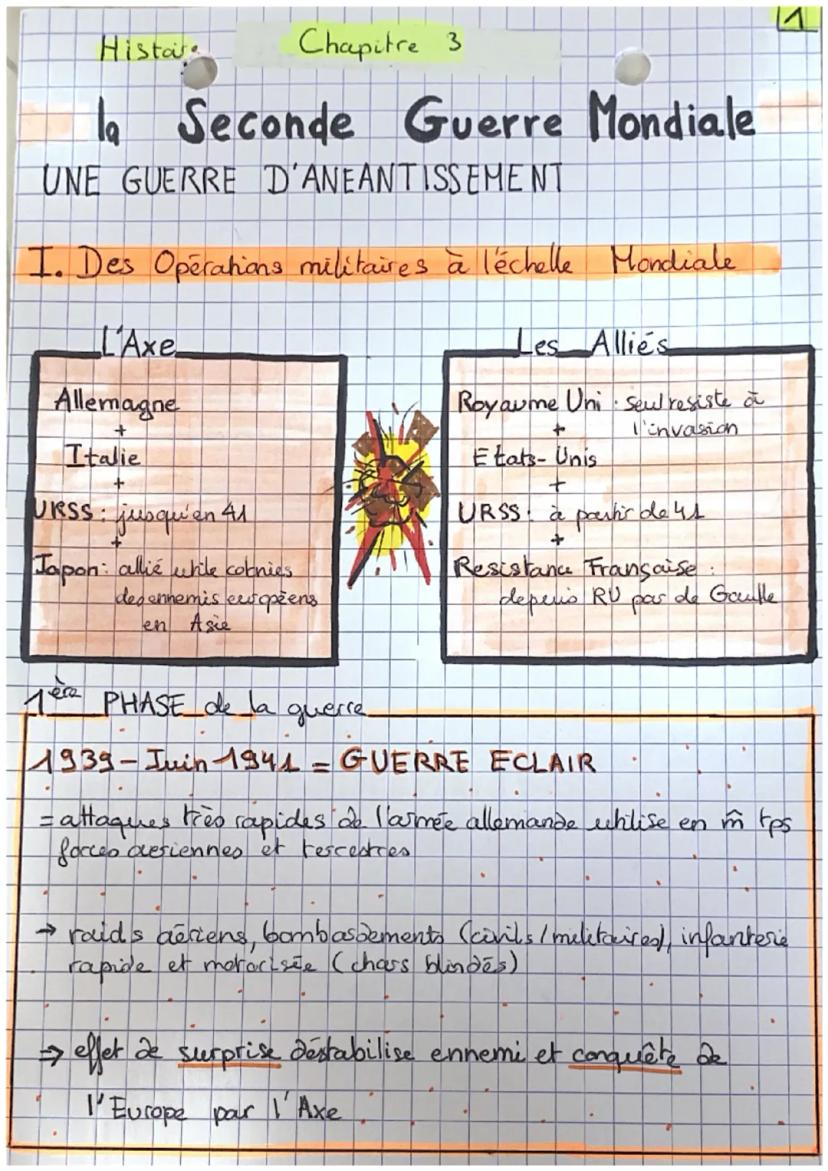 1
Histoire Chapitre 3
la Seconde Guerre Mondiale
UNE GUERRE D'ANEANTISSEMENT
I. Des Opérations militaires à l'échelle Mondiale
L'Axe
Allemagne
+
Italie
+
URSS : jusqu'en 41
+
Japon : allié utile colonies
des ennemis européens
en Asie
Les Alliés
Royaume Uni : seul resiste à
l'invasion
+
Etats-Unis
+
URSS : à partir de 41
+
Resistance Française :
depuis RU par de Gaulle
1ère PHASE de la guerre
1939 - Juin 1941 = GUERRE ECLAIR
= attaques très rapides de l'armée allemande utilise en m̂ tps
forces aeriennes et terrestres
→ raids aériens, bombardements (civils/militaires), infanterie
rapide et motorisée (chars blindés)
⇒ effet de surprise déstabilise ennemi et conquête de
l'Europe par l'Axe